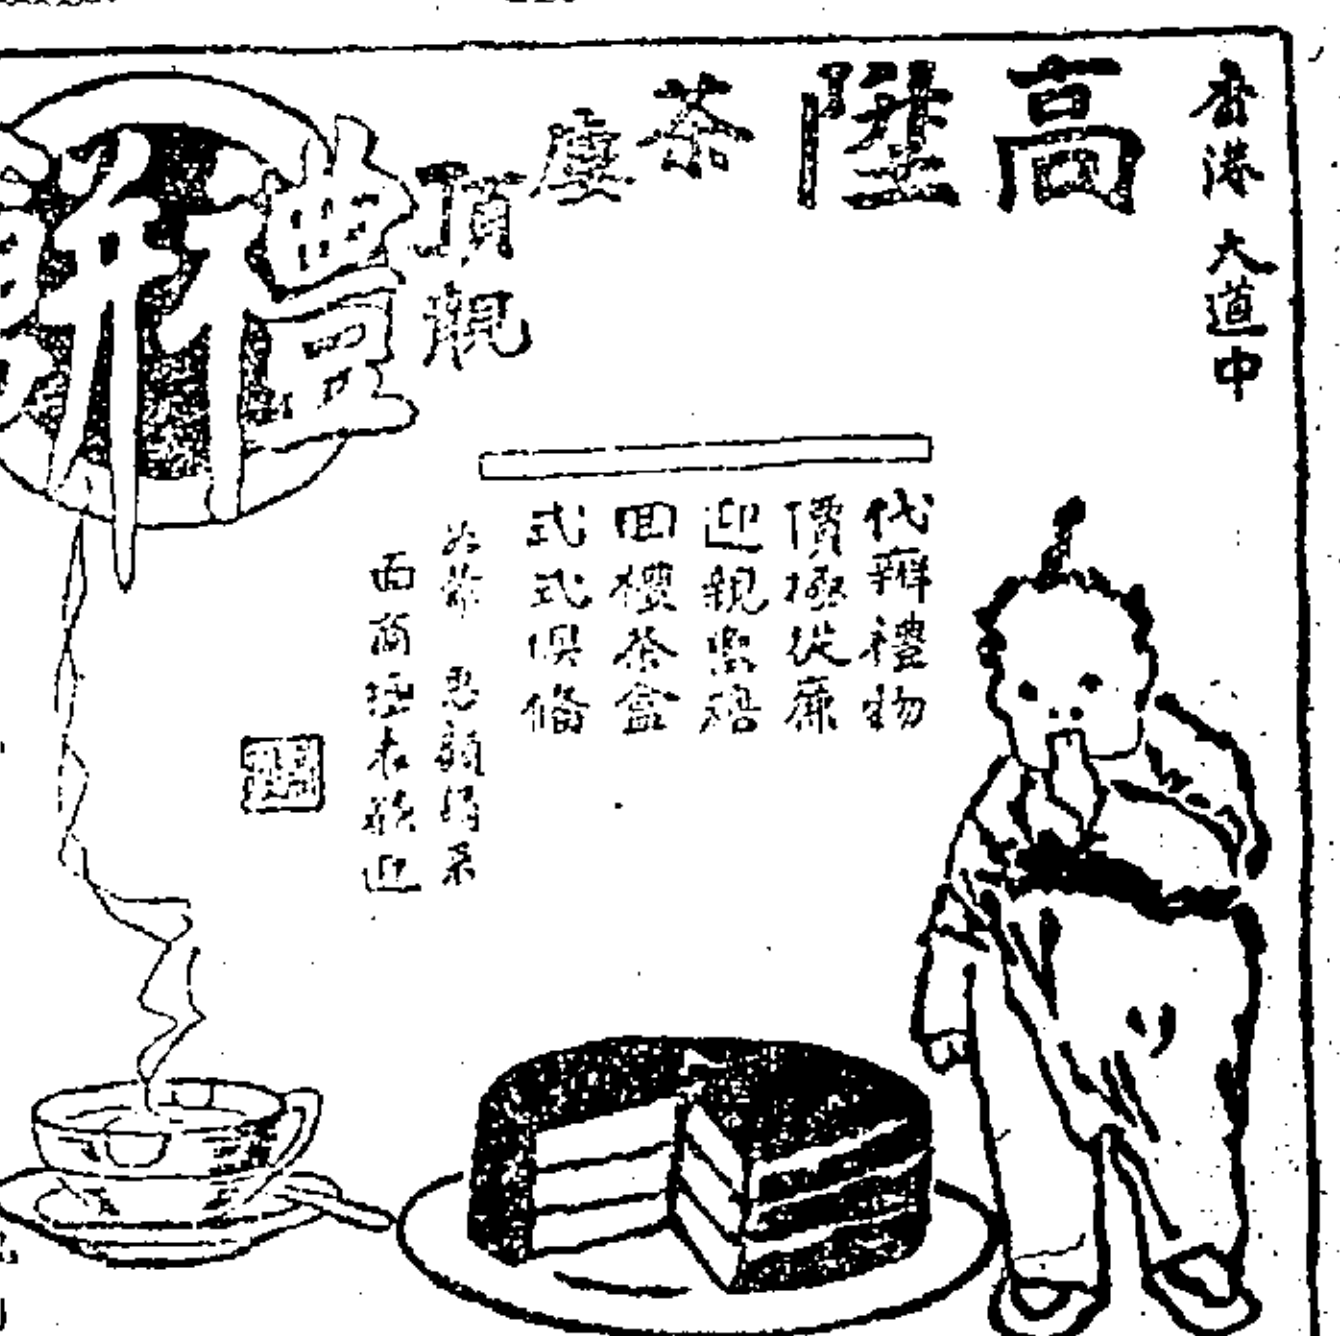 香港大道中
高陞茶樓
頂靚
禮餅
代辦禮物
價極從廉
迎親
回茶盒
式式俱備
如蒙 惠顧請
面商極表歡迎